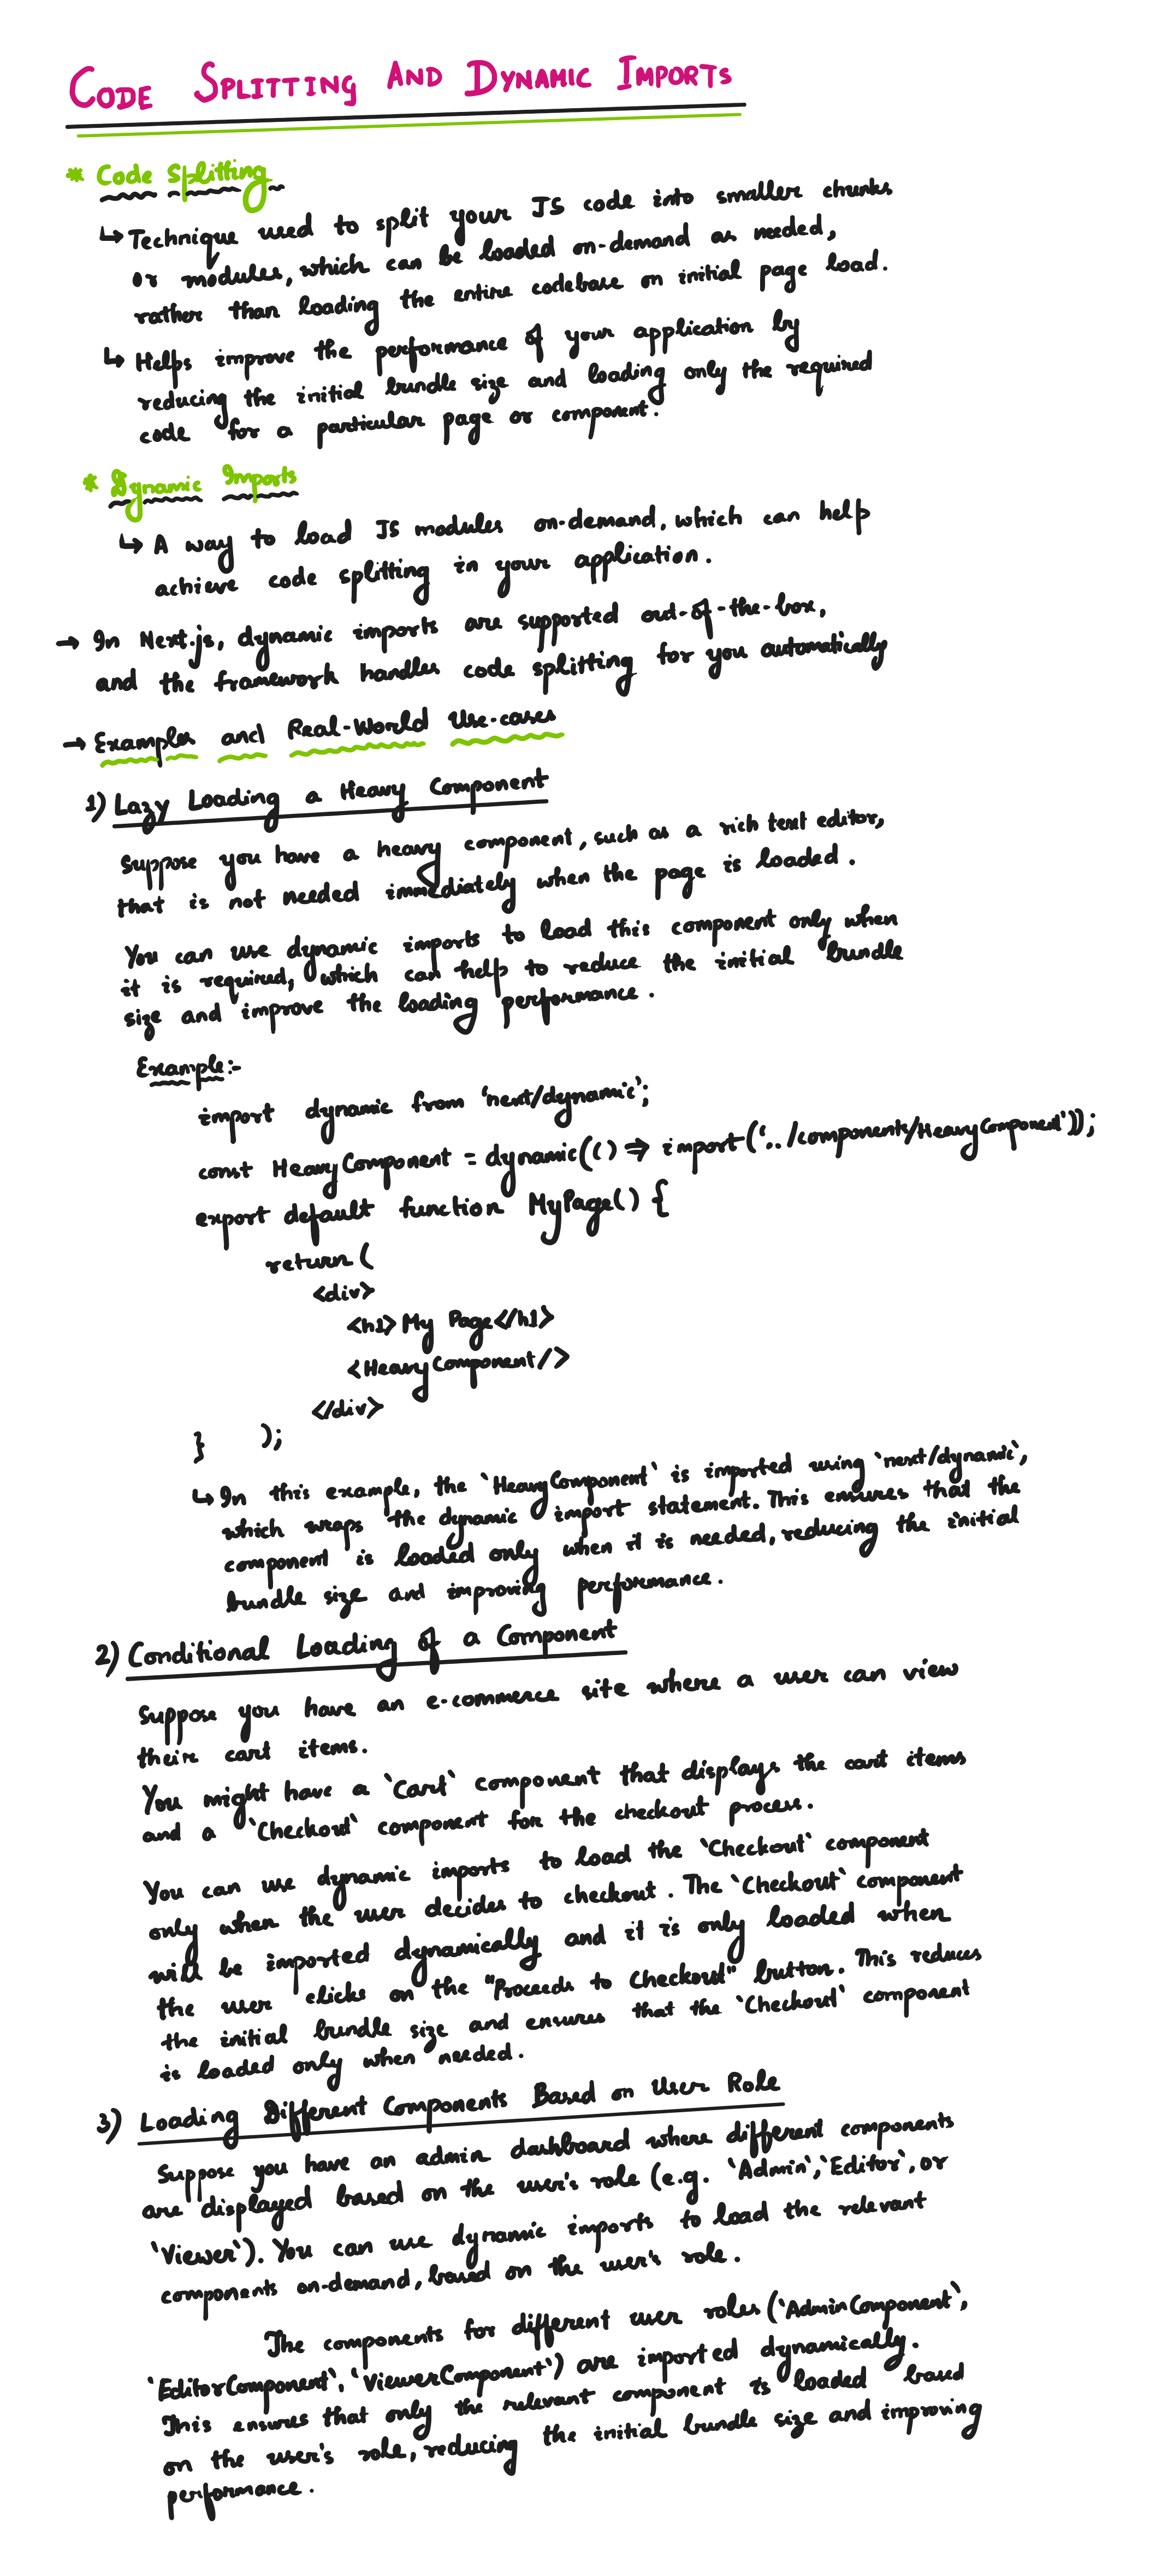 CODE SPLITTING AND DYNAMIC IMPORTS
* Code Splitting
↳ Technique used to split your JS code into smaller chunks
or modules, which can be loaded on-demand as needed,
rather than loading the entire codebase on initial page load.
↳ Helps improve the performance of your application by
reducing the initial bundle size and loading only the required
code for a particular page or component.
* Dynamic Imports
↳ A way to load JS modules on-demand, which can help
achieve code splitting in your application.
→ In Next.js, dynamic imports are supported out-of-the-box,
and the framework handles code splitting for you automatically
→ Examples and Real-World Use-cases
1) Lazy Loading a Heavy Component
Suppose you have a heavy component, such as a rich text editor,
that is not needed immediately when the page is loaded.
You can use dynamic imports to load this component only when
it is required, which can help to reduce the initial bundle
size and improve the loading performance.
Example:-
import dynamic from 'next/dynamic';
const HeavyComponent = dynamic(() => import('../components/HeavyComponent'));
export default function MyPage() {
return (
<div>
<h1>My Page</h1>
<HeavyComponent/>
</div>
} );
↳ In this example, the `HeavyComponent` is imported using `next/dynamic`,
which wraps the dynamic import statement. This ensures that the
component is loaded only when it is needed, reducing the initial
bundle size and improving performance.
2) Conditional Loading of a Component
Suppose you have an e-commerce site where a user can view
their cart items.
You might have a `Cart` component that displays the cart items
and a `Checkout` component for the checkout process.
You can use dynamic imports to load the `Checkout` component
only when the user decides to checkout. The `Checkout` component
will be imported dynamically and it is only loaded when
the user clicks on the "Proceeds to Checkout" button. This reduces
the initial bundle size and ensures that the `Checkout` component
is loaded only when needed.
3) Loading Different Components Based on User Role
Suppose you have an admin dashboard where different components
are displayed based on the user's role (e.g. `Admin`, `Editor`, or
`Viewer`). You can use dynamic imports to load the relevant
components on-demand, based on the user's role.
The components for different user roles (`AdminComponent`,
`EditorComponent`, `ViewerComponent`) are imported dynamically.
This ensures that only the relevant component is loaded based
on the user's role, reducing the initial bundle size and improving
performance.